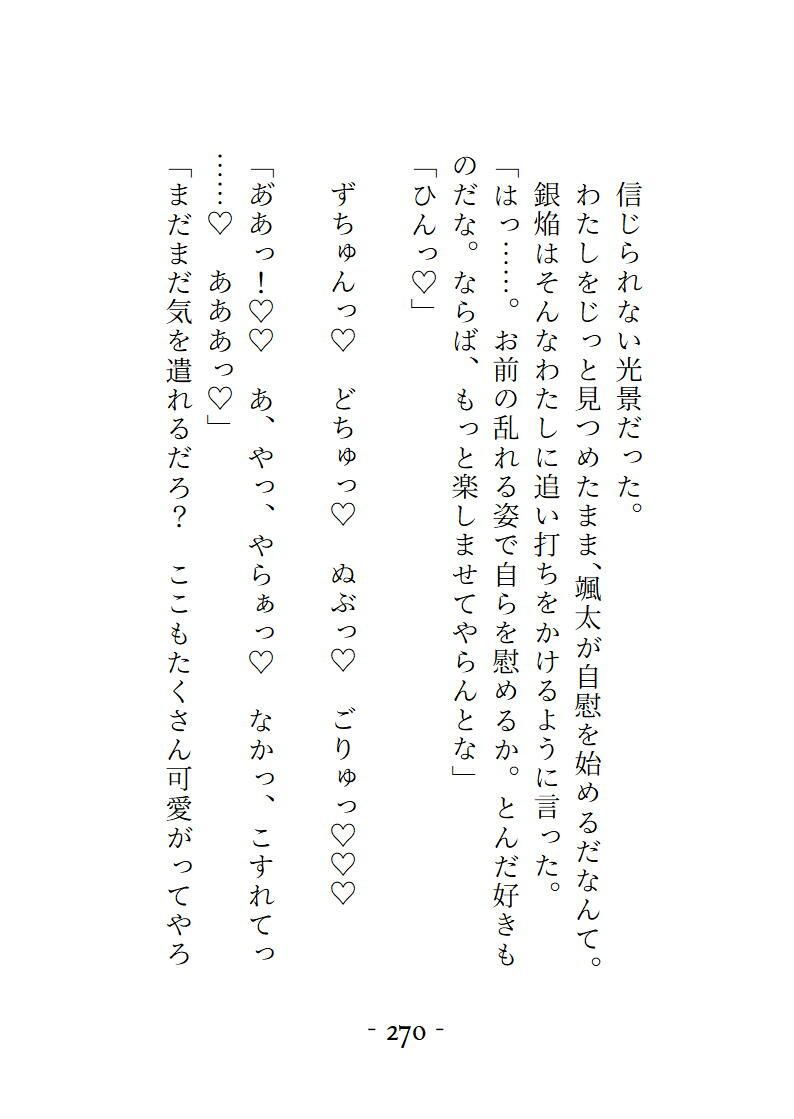 信じられない光景だった。
わたしをじっと見つめたまま、颯太が自慰を始めるだなんて。
銀焔はそんなわたしに追い打ちをかけるように言った。
「はっ……。お前の乱れる姿で自らを慰めるか。とんだ好きも
のだな。ならば、もっと楽しませてやらんとな」
「ひんっ♡」
ずちゅんっ♡　どちゅっ♡　ぬぶっ♡　ごりゅっ♡♡♡
「あ゙あっ！♡♡　あ、やっ、やらぁっ♡　なかっ、こすれてっ
……♡　あああっ♡」
「まだまだ気を遣れるだろ？　ここもたくさん可愛がってやろ
- 270 -